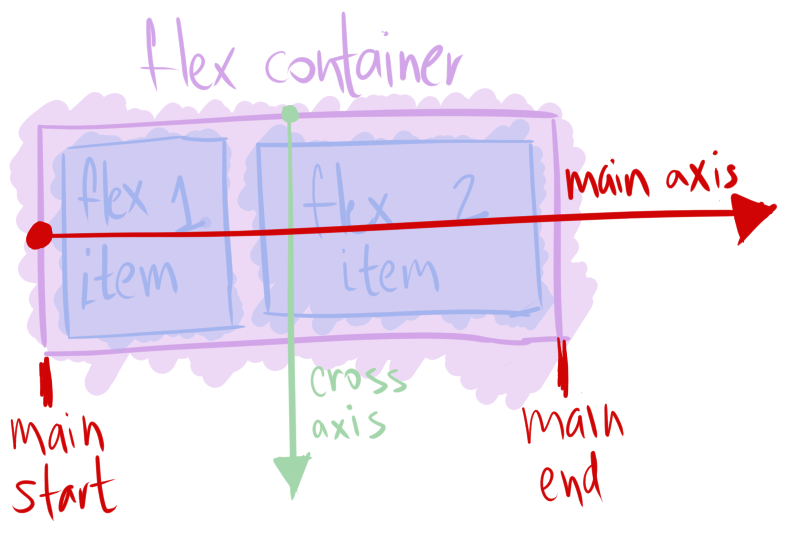 flex container
flex 1
item
flex 2
item
main axis
cross
axis
main
start
main
end